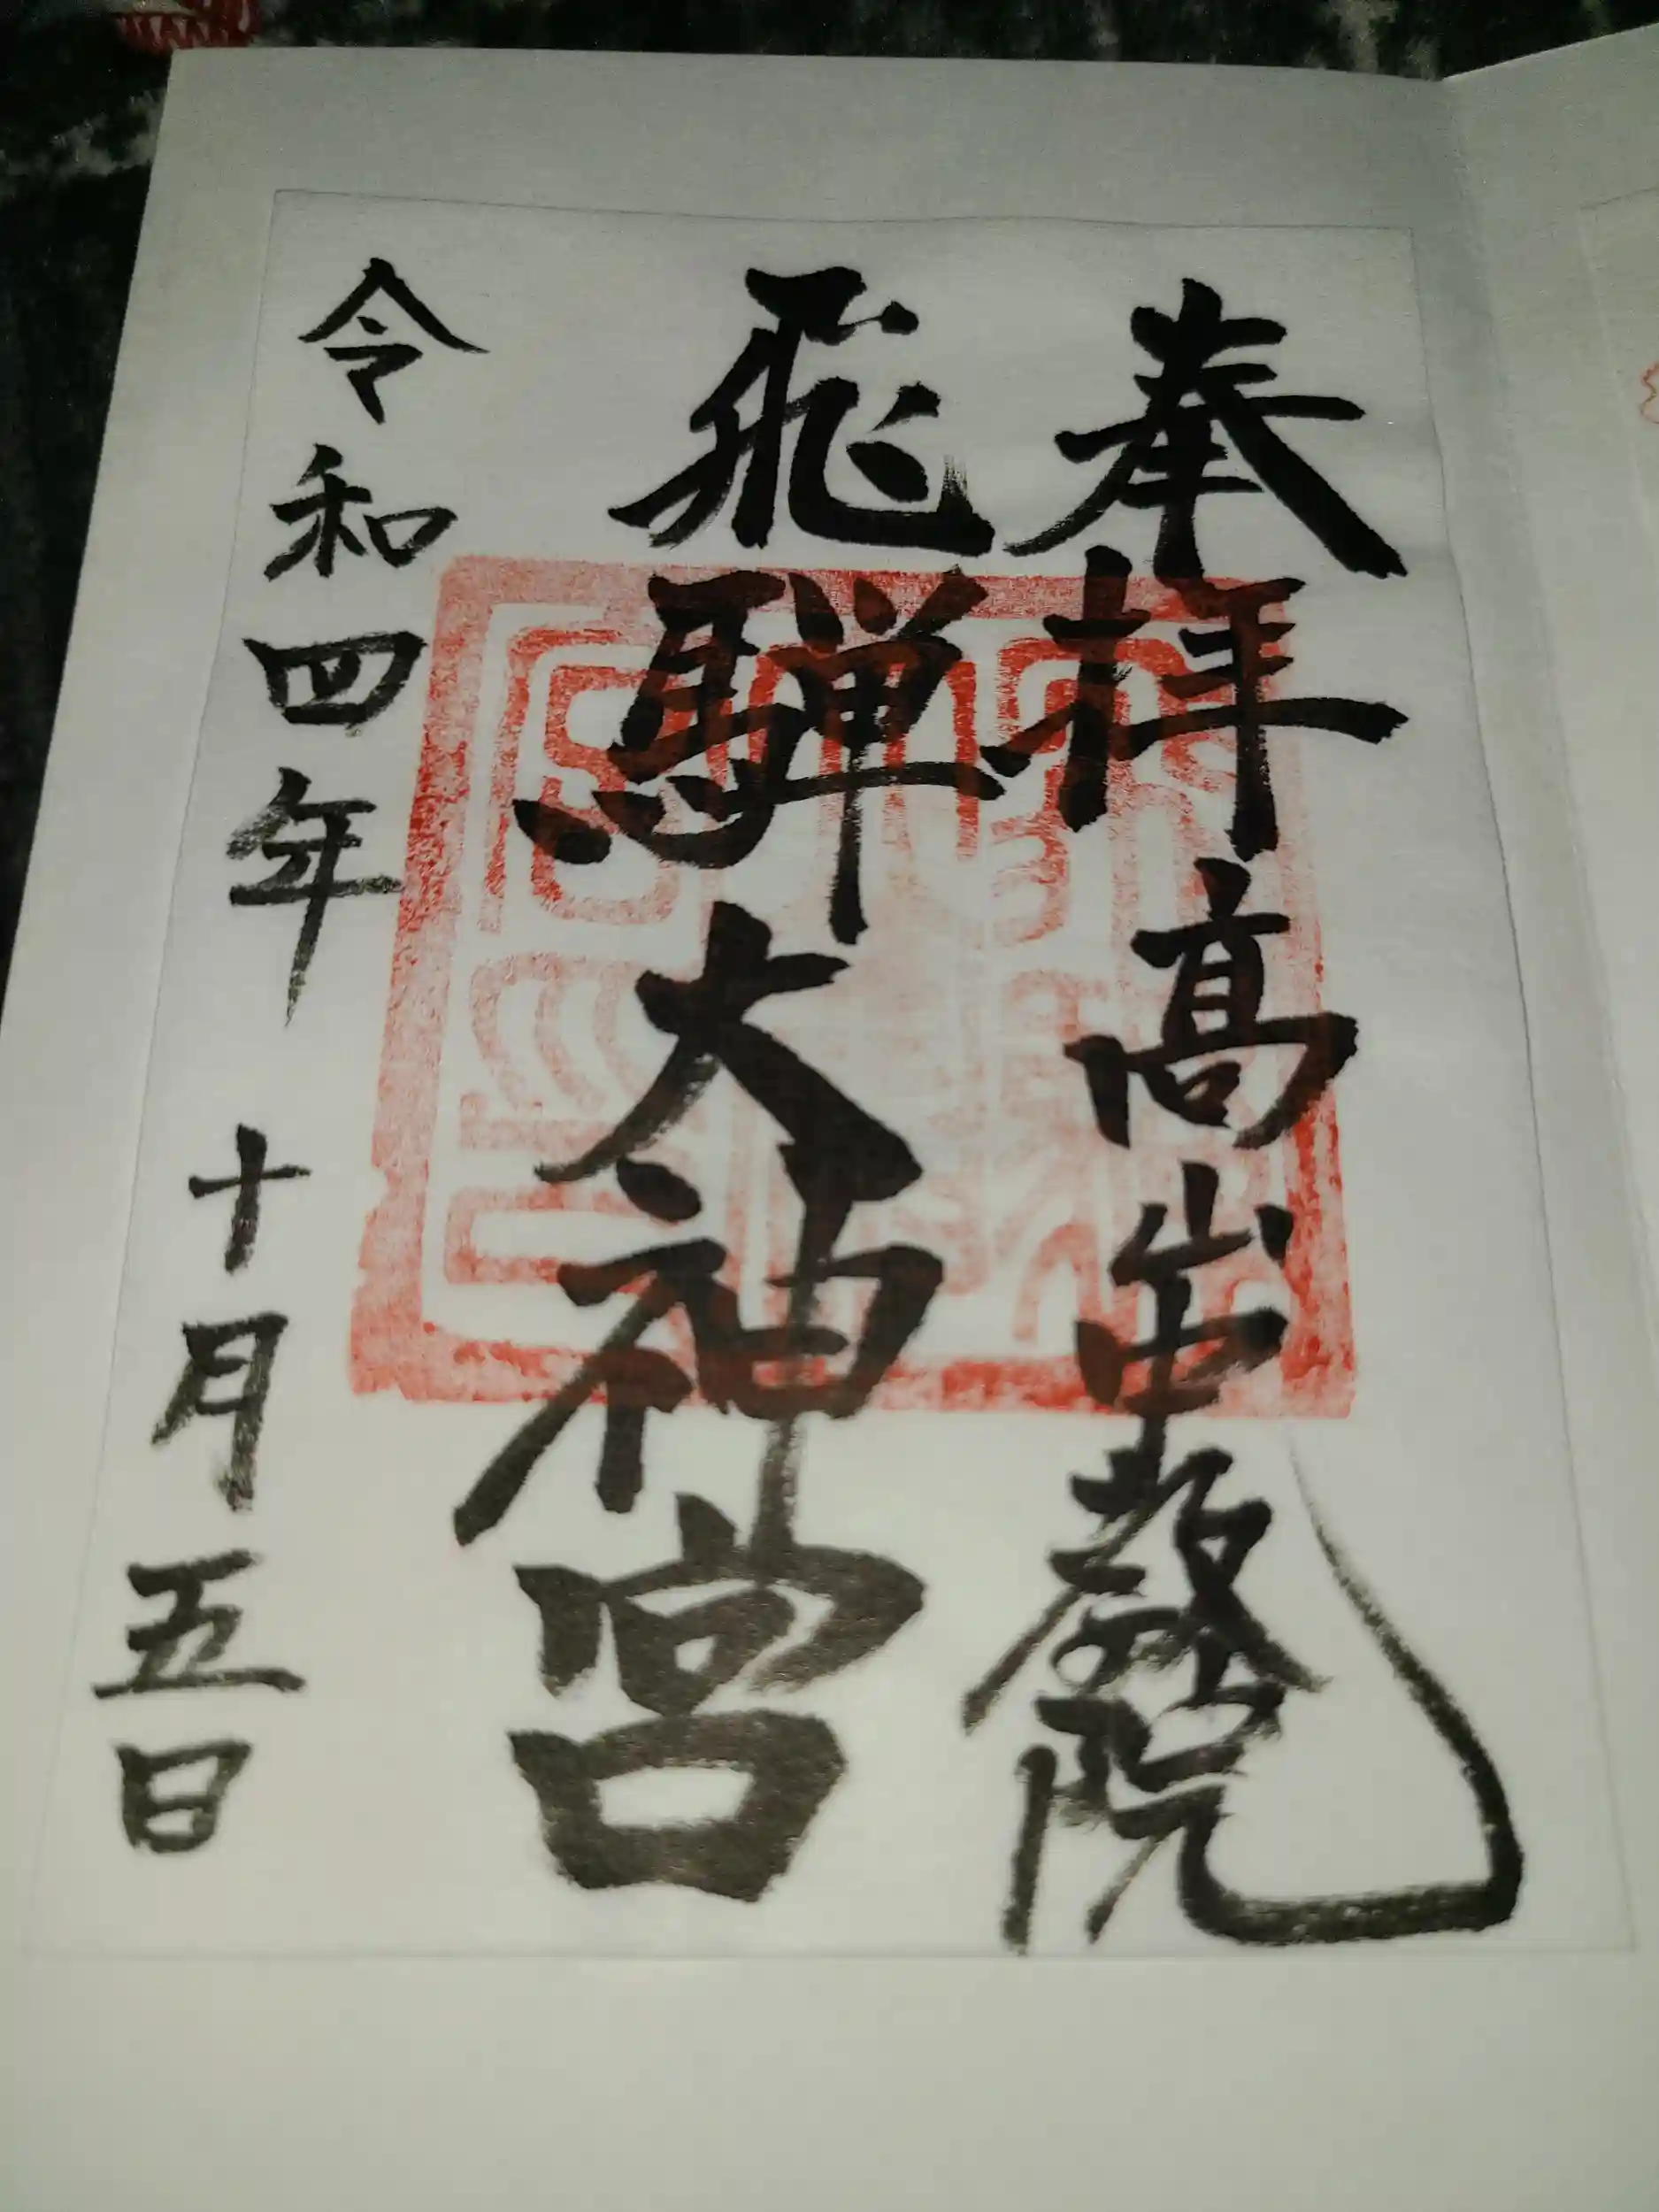 奉拝 髙山中教院
飛騨大神宮
令和四年 十月五日